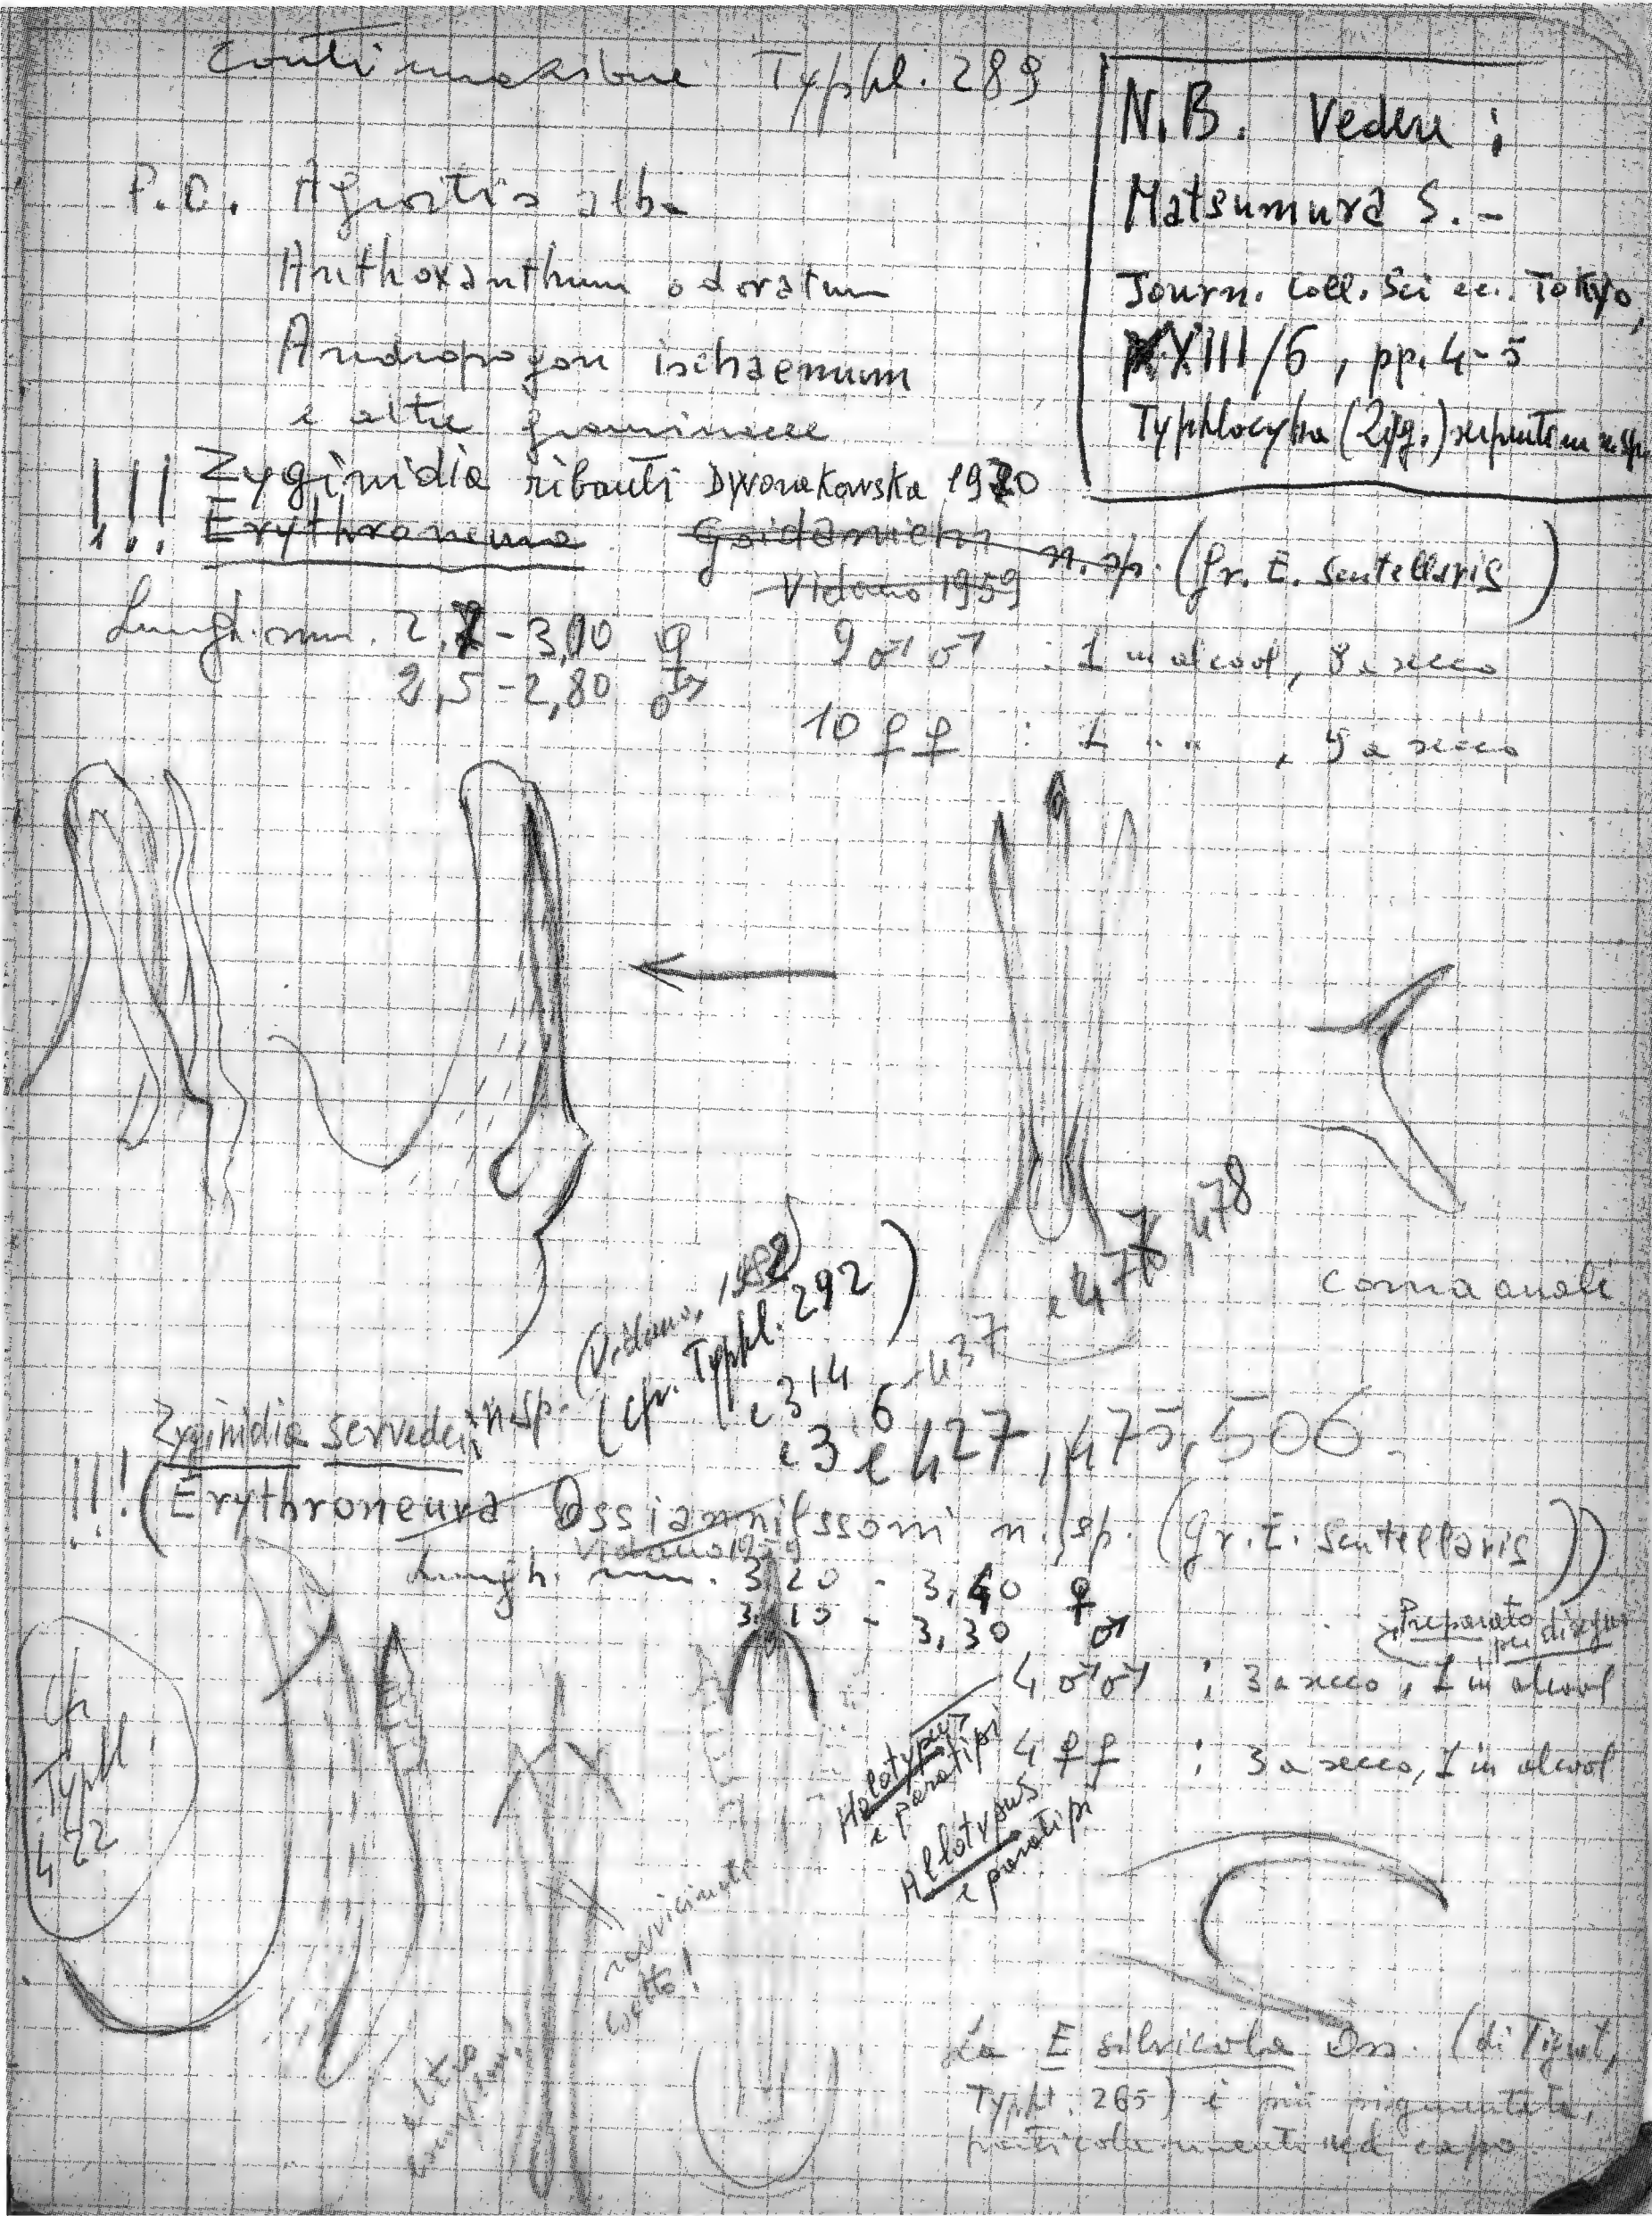 Continuazione Typhl. 289
N.B. Vedere :
Matsumura S. -
Journ. Coll. Sci ec. Tokyo,
XXIII/6, pp. 4-5
Typhlocyba (Zyg.)
P.O. Agrostis alba
Anthoxanthum odoratum
Andropogon ischaemum
e altre graminacee
!!! Zyginidia ribauti Dworakowska 1970
Erythroneura Goidanichi n. sp. (gr. E. Scutellaris)
Vidano 1959
Lungh. mm. 2,7 - 3,00 ♀
2,5 - 2,80 ♂
9 ♂♂ : 1 in alcool, 8 a secco
10 ♀♀ : 1 " " , 9 a secco
corna anali
(Vidano, 1982)
(cfr. Typhl. 292)
e 314
e 316 - 437 e 477, 478
e 427, 475, 506.
Zyginidia servadeii n. sp.
!!! (Erythroneura Ossiannilssoni n. sp. (Gr. E. Scutellaris))
Vidano 1959
Lungh. mm. 3,20 - 3,40 ♀
3,10 - 3,30 ♂
Preparato
per disegni
4 ♂♂ : 3 a secco, 1 in alcool
Holotypus
e paratipi
4 ♀♀ : 3 a secco, 1 in alcool
Allotypus
e paratipi
Cfr
Typhl
422
ravvicinate
sotto!
altro
La E silvicola Oss. (di
Typhl. 265) è più pigmentata,
particolarmente nel capo.